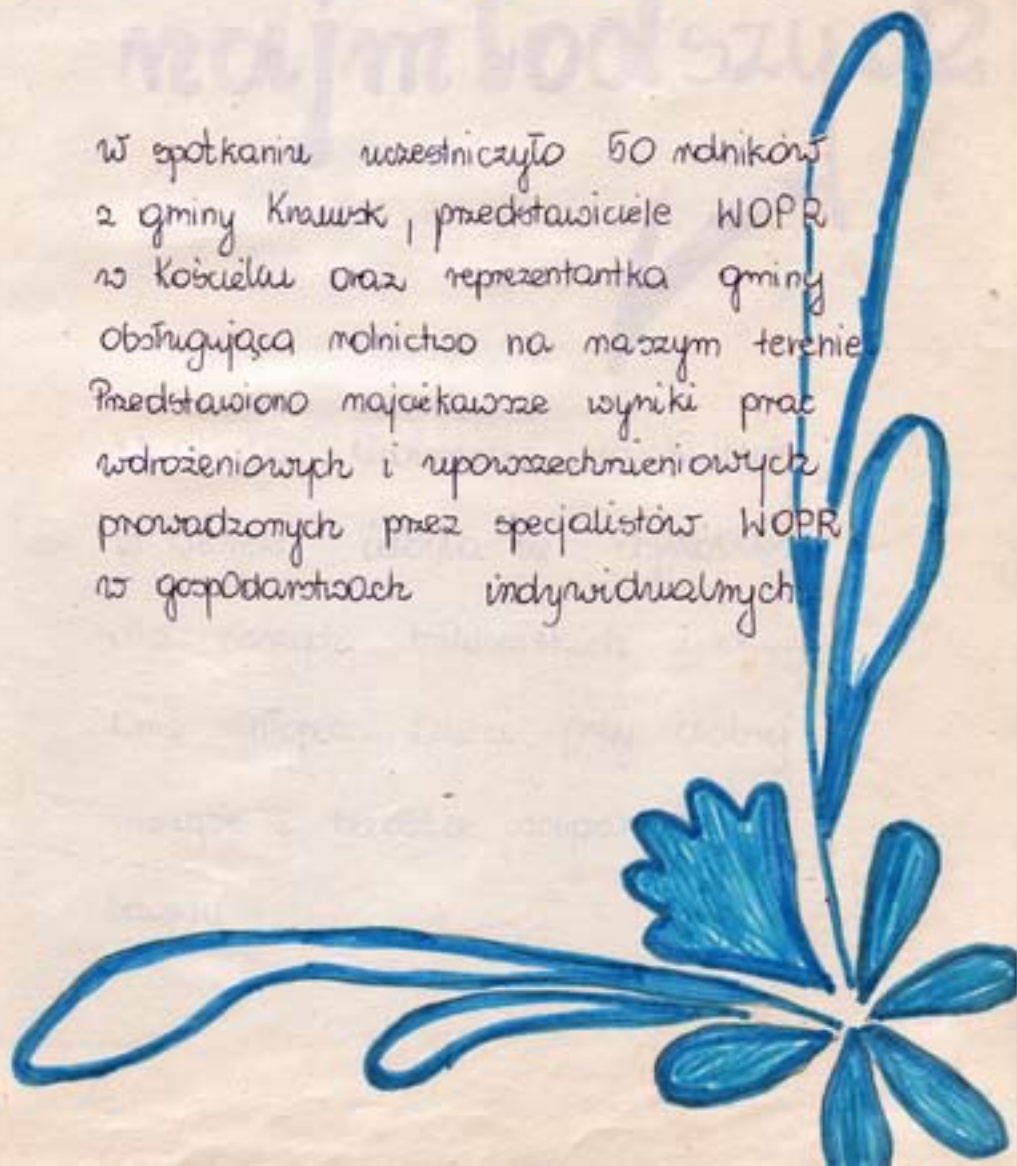 W spotkaniu uczestniczyło 50 rolników
z gminy Kramsk, przedstawiciele WOPR
w Kościelcu oraz reprezentantka gminy
obsługująca rolnictwo na naszym terenie
Przedstawiono najciekawsze wyniki prac
wdrożeniowych i upowszechnieniowych
prowadzonych przez specjalistów WOPR
w gospodarstwach indywidualnych